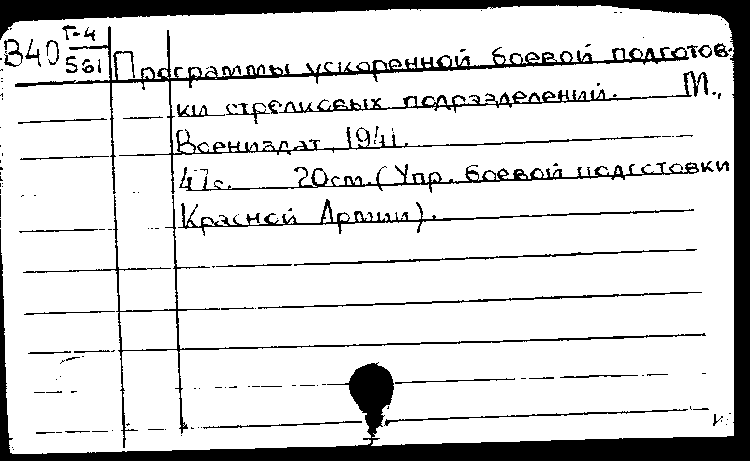 В40 Г-4
561
Программы ускоренной боевой подготов-
ки стрелковых подразделений. М.,
Воениздат, 1941.
47с. 20см. (Упр. боевой подготовки
Красной Армии).